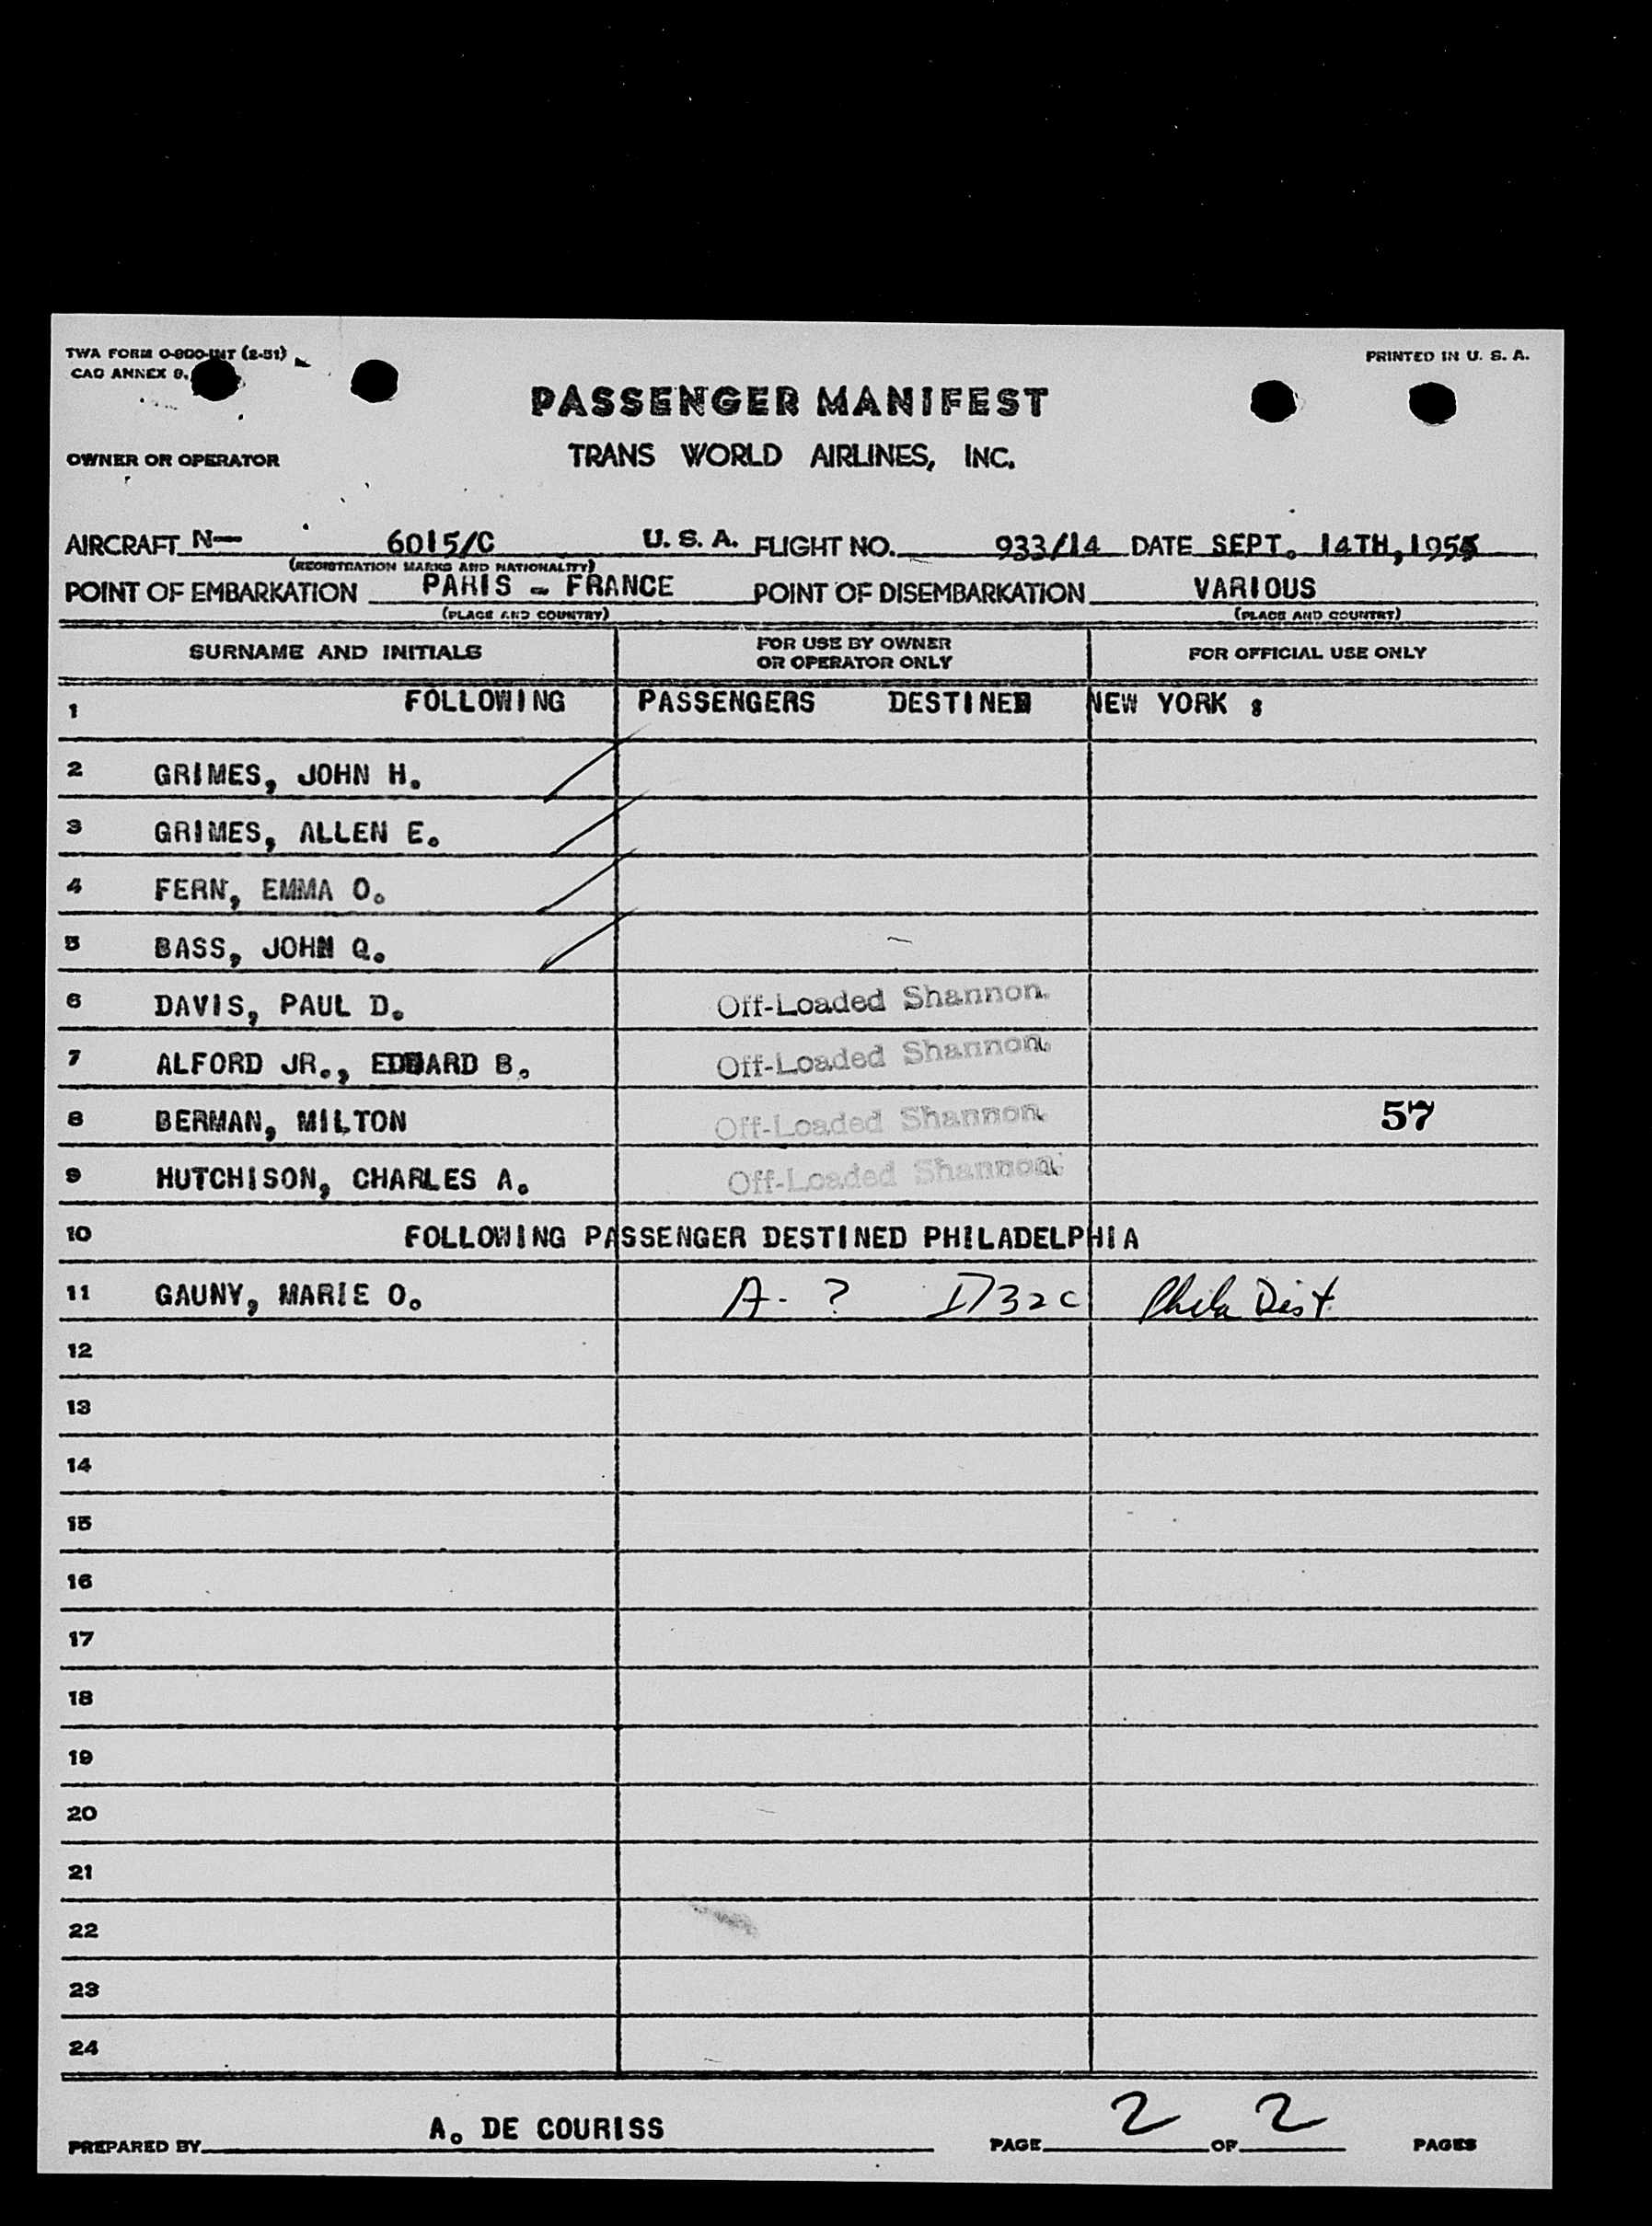 TWA FORM O-800-INT (2-51)
CAO ANNEX 9,
PRINTED IN U. S. A.
PASSENGER MANIFEST
OWNER OR OPERATOR
TRANS WORLD AIRLINES, INC.
AIRCRAFT N— 6015/C U. S. A. FLIGHT NO. 933/14 DATE SEPT. 14TH,
(REGISTRATION MARKS AND NATIONALITY)
POINT OF EMBARKATION PARIS - FRANCE POINT OF DISEMBARKATION VARIOUS
(PLACE AND COUNTRY) (PLACE AND COUNTRY)
SURNAME AND INITIALS
FOR USE BY OWNER
OR OPERATOR ONLY
FOR OFFICIAL USE ONLY
1 FOLLOWING PASSENGERS DESTINED NEW YORK :
2 GRIMES, JOHN H.
3 GRIMES, ALLEN E.
4 FERN, EMMA O.
5 BASS, JOHN Q.
6 DAVIS, PAUL D. Off-Loaded Shannon.
7 ALFORD JR., EDWARD B. Off-Loaded Shannon.
8 BERMAN, MILTON Off-Loaded Shannon. 57
9 HUTCHISON, CHARLES A. Off-Loaded Shannon.
10 FOLLOWING PASSENGER DESTINED PHILADELPHIA
11 GAUNY, MARIE O. A- ? D32c Phila Dist.
12
13
14
15
16
17
18
19
20
21
22
23
24
PREPARED BY A. DE COURISS PAGE 2 OF 2 PAGES